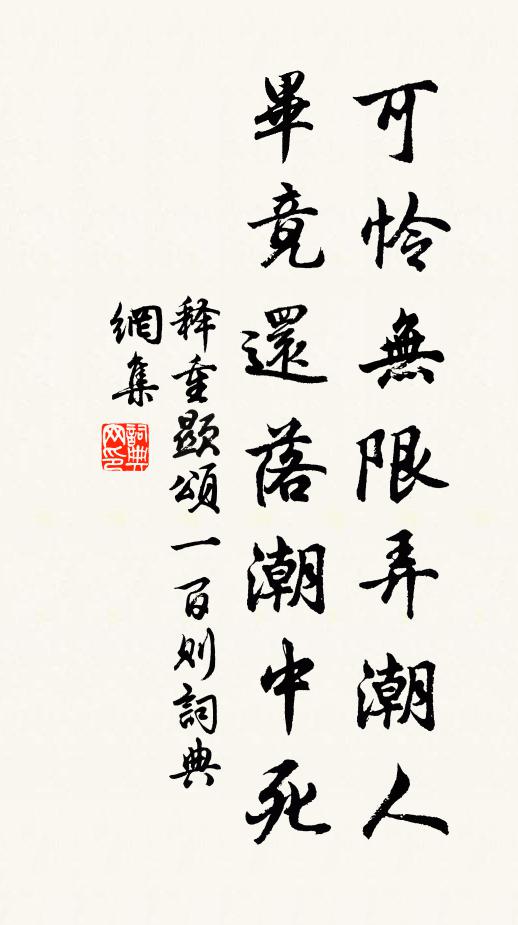 可怜無限弄潮人
畢竟還落潮中死
释重顯頌一百则詞典
網集
詞典
网印